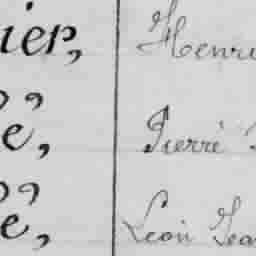 ier, Henri
e, Pierre
e, Léon Jea